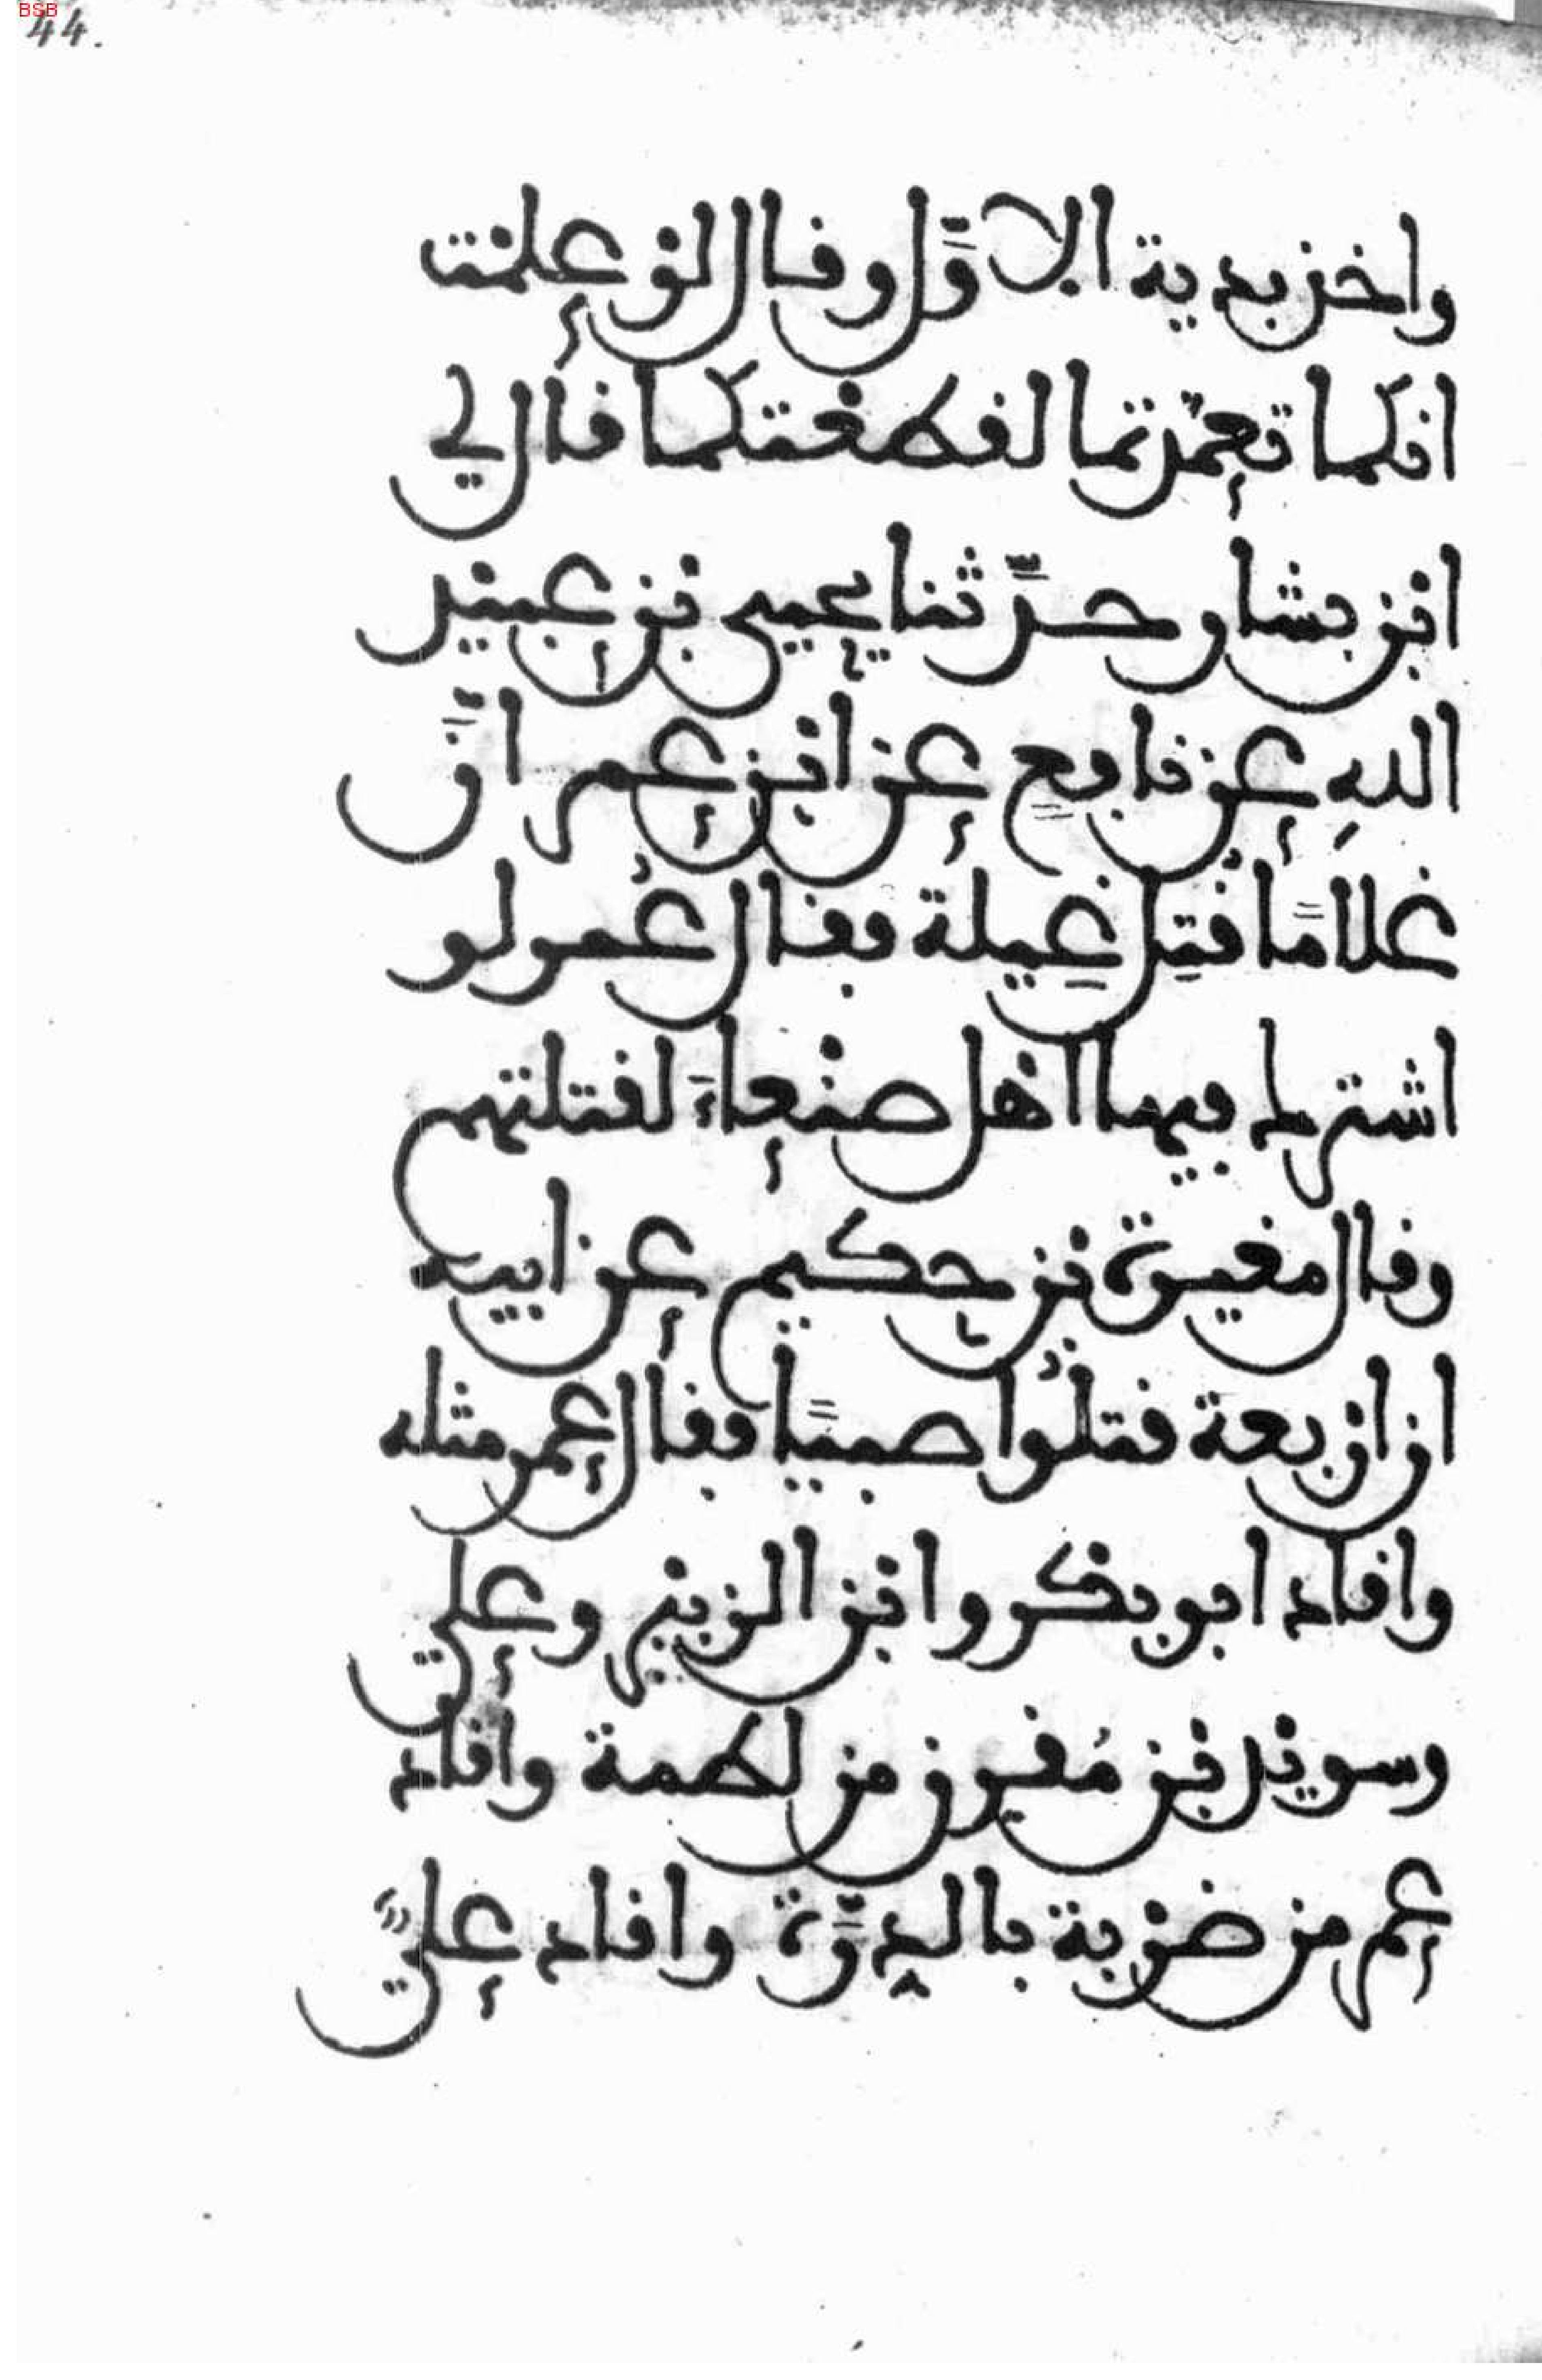 BSB
44.
واخذ بدية الاوَّل وقال لو علمت
انكما تعمدتما لقطعتكما قال لي
ابن بشار حدَّثنا يحيى بن عبيد
اللهِ عن نافعٍ عن ابن عمر انَّ
غلامًا قُتِل غِيلة فقال عُمر لو
اشترك فيها اهل صنعاءَ لقتلتهم
وقال مغيرة بن حكيم عن ابيه
ان اربعة قتلُوا صبيًا فقال عمر مثله
واقاد ابو بكر وابن الزبير وعلي
وسويد بن مُقرن من لطمة واقاد
عمر من ضربة بالدِرَّة واقاد عليٌّ